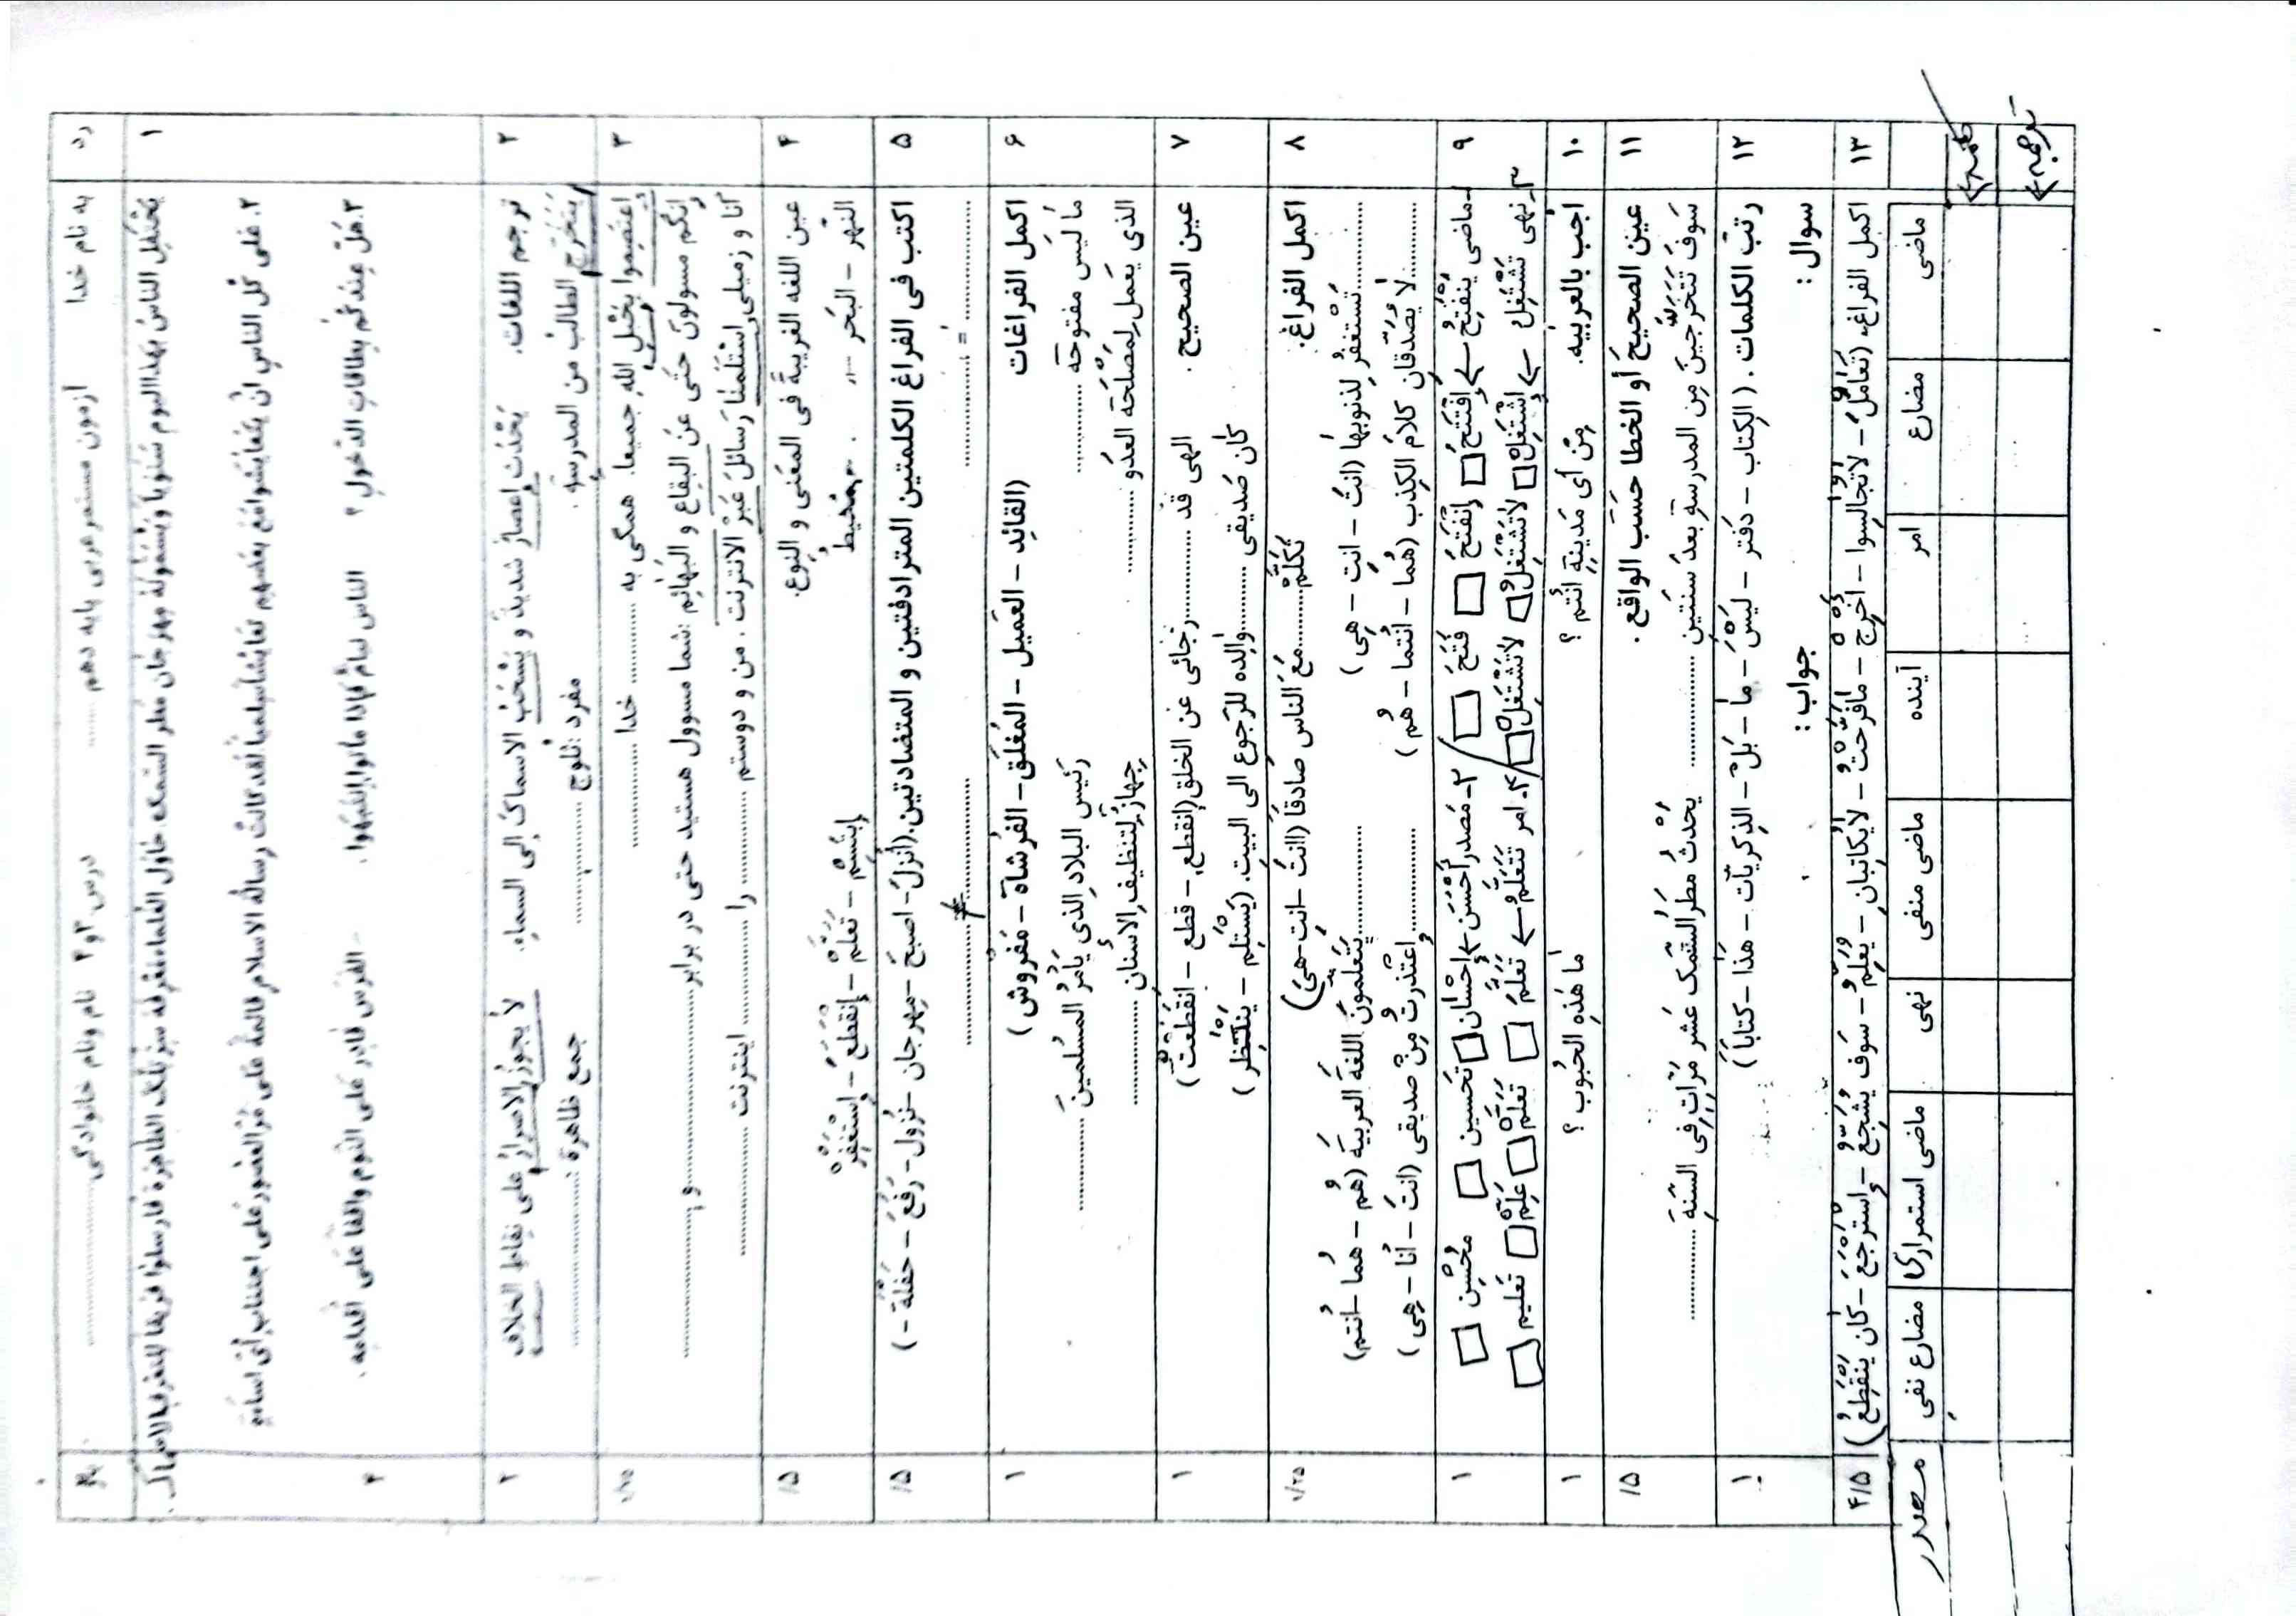 رد به نام خدا آزمون مستمر عربی پایه دهم درس ۳و۴ نام ونام خانوادگی
۱ يَحْتَفِلُ الناسُ بهذا اليوم سَنَوياً ويُسَمّونَهُ مِهرَجان مطر السّمك حاوَلَ العُلماء مَعْرِفَةَ سِرِّ تِلْكَ الظاهِرَة فارسلوا فريقاً
۲. عَلى كُلّ الناسِ اَنْ يَتَعايَشوا مَعَ بَعْضِهِم تَعايُشاً سِلمياً لَقد كانَتْ رِسالةُ الاسلام قائمةً عَلى مَرّ العُصُور عَلى اجتنابِ أَىّ اساءَةٍ
۳. هَلْ عِندَكُم بِطاقاتِ الدُخولِ ؟ الناس نيامٌ فَإذا ماتوا اِنْتَبَهوا . - الفَرَس قادِر عَلى النّوم واقفاً عَلى اقدامِه . ۴
۲ ترجم اللغات. يَحْدُث إعصارٌ شديدٌ و يَسْحَبُ الاسماكَ إلى السماءِ. لا يجوزُ الاصرارُ على نقاطِ الخلاف ۲
يَتَخَرّج الطالب من المدرسةِ . مفرد :ثلوج .......... جمع ظاهِرة : ..........
۳ اِعتَصِموا بِحَبْلِ اللهِ جميعا. همگی به .......... خدا ..........
إنكم مسولونَ حَتّى عَنِ البقاع و البَهائِم :شما مسوول هستید حتی در برابر .......... و ..........
أنا و زميلى اِسْتَلَمْنا رَسائلَ عَبْرَ الانترنت . من و دوستم .......... را .......... اینترنت ..........
۴ عين اللغه الغريبةَ فى المعنى و النوع. ۵/
النّهر – البَحَر – .. مُحيطُ إبتَسِمْ – تَعَلَّمْ – إنقَطَعَ – إسْتَغْفِرْ
۵ اكتب فى الفراغ الكلمتين المترادفتين و المتضادتين.(أنزلَ- اصبَحَ – مِهرجان – نُزول- رَفَعَ – حَفْلَة -) ۵/
.......... = .......... .......... ≠ ..........
۶ اكمل الفراغات (القائِد – العَميل – المُغلَق- الفُرشاة – مَفروش ) ۱
ما لَيسَ مفتوحَة .......... رَئيس البلادِ الذى يَأمُرُ المُسلمينَ ..........
الذى يَعمَل لِمَصْلَحَة العدو .......... جِهازٌ لِتنظيفِ الأسنانِ ..........
۷ عين الصحيح . الهى قد ..........رجائى عن الخلق(إنقطع- قطع – انقَطَعَتْ ) ۱
كان صَديقى ..........والِده للرّجوع الى البيتِ. (يَستَلِم – يَنْتَظر )
۸ اكمل الفراغ. تَكَلَّمْ..........مَعَ النّاس صادقاً (اانتَ –انتِ–هىَ)
..........تَستغفرُ لِذنوبِها (انتَ – انتِ – هِى ) يَتَعلمّونَ ..........اللغةَ العربيَة (هُم – هُما –انتم)
..........لا يُصَدّقانِ كلامَ الكِذب (هُما – انُتما – هُم ) اعتذرتُ مِنْ صديقى (انتَ – أنا – هِى )
۹ ۱ـ ماضى يَنْفَتِحُ ← اِفْتَتَحَ □ اِنْفَتَحَ □ فَتَحَ □ / ۲- مَصدر أحْسَنَ ← إحْسان □ تَحَسين □ مُحْسِن □ ۱
۳ـ نهى تَشْتَغِلُ ← اِشْتَغِلْ □ لاتَشْتَغِلُ □ لاتَشْتَغِلْ □ / ۴ـ امر تَتَعَلَّمُ ← تَعَلَّمَ □ تَعَلَّمْ □ عَلِّمْ □ تَعليم □
۱۰ اجب بالعربيّه. مِنْ أى مَدينةٍ أنتُم ؟ ما هَذِهِ الحُبوب ؟ ۱
۱۱ عين الصحيحَ أو الخطا حَسَب الواقِع . ۵/
سَوفَ تَتَخَرَّجينَ مِن المدرسةِ بعدَ سَنَتينِ .......... يَحْدُثُ مَطَر السّمَک عَشرَ مَرّاتٍ فِى السّنةِ ..........
۱۲ رتب الكلمات. ( الكِتاب – دَفتر – لَيْسَ – ما – بَلْ – الذِكريّات – هَذا – كتاباً ) ۱
سوال : جواب :
۱۳ اكمل الفراغ. (تَعامُل – لاتُجالِسوا – اُخرجْ – مافَرحَتْ – لايُكاتِبانِ – يعلم – سَوف يُشَجِّعُ – اِستَرجَعَ – كانَ يَنْقَطِعُ ) ۴/۵
ماضی مضارع امر آینده ماضی منفی نهی ماضی استمراری مضارع نفی مصدر
کلمه
ترجمه